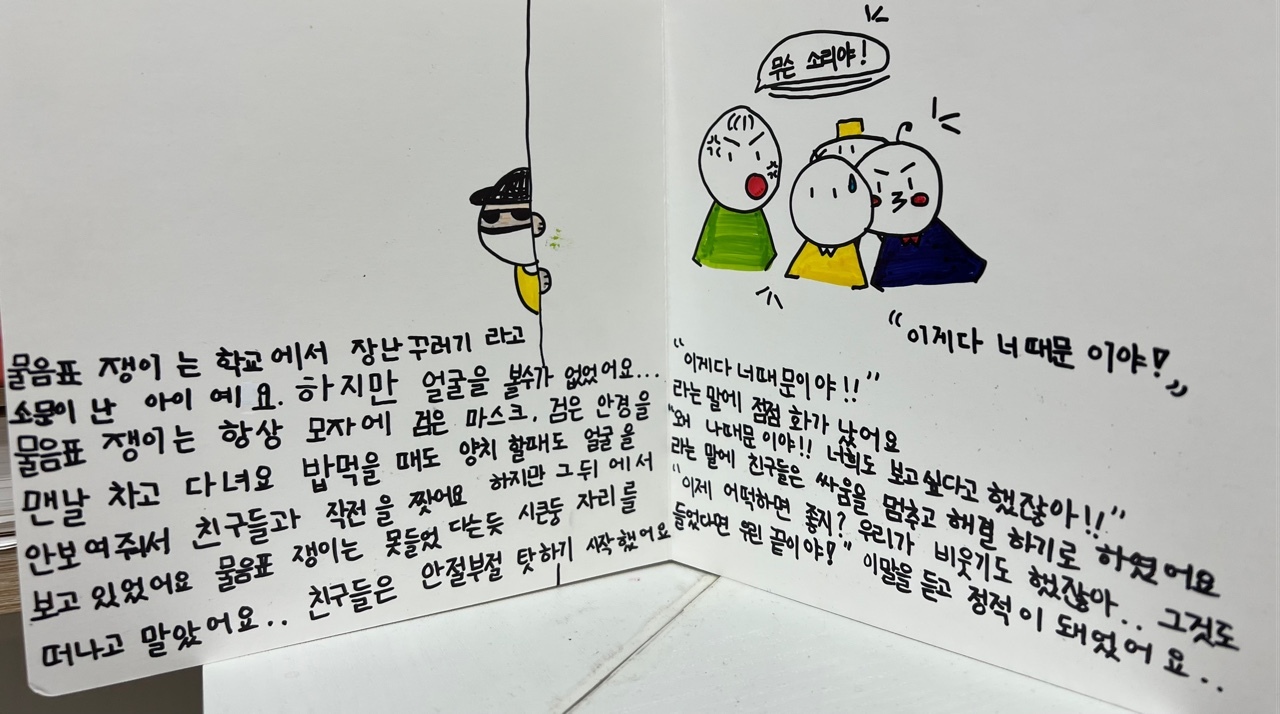 물음표 쟁이 는 학교에서 장난꾸러기 라고
소문이 난 아이 예요. 하지만 얼굴을 볼수가 없었어요...
물음표 쟁이는 항상 모자에 검은 마스크, 검은 안경을
맨날 차고 다녀요 밥먹을 때도 양치 할때도 얼굴을
안보여줘서 친구들과 작전을 짰어요 하지만 그뒤에서
보고있었어요 물음표 쟁이는 못들었 다는듯 시큰둥 자리를
떠나고 말았어요.. 친구들은 안절부절 탓하기 시작했어요
무슨 소리야!
"이게다 너때문 이야!"
"이게다 너때문이야!!"
라는말에 점점 화가 났어요
"왜 나때문이야!! 너희도 보고싶다고 했잖아!!"
라는 말에 친구들은 싸움을 멈추고 해결 하기로 하였어요
"이제 어떡하면 좋지? 우리가 비웃기도 했잖아.. 그것도
들었다면 우린 끝이야!" 이말을 듣고 정적이 돼었어요..